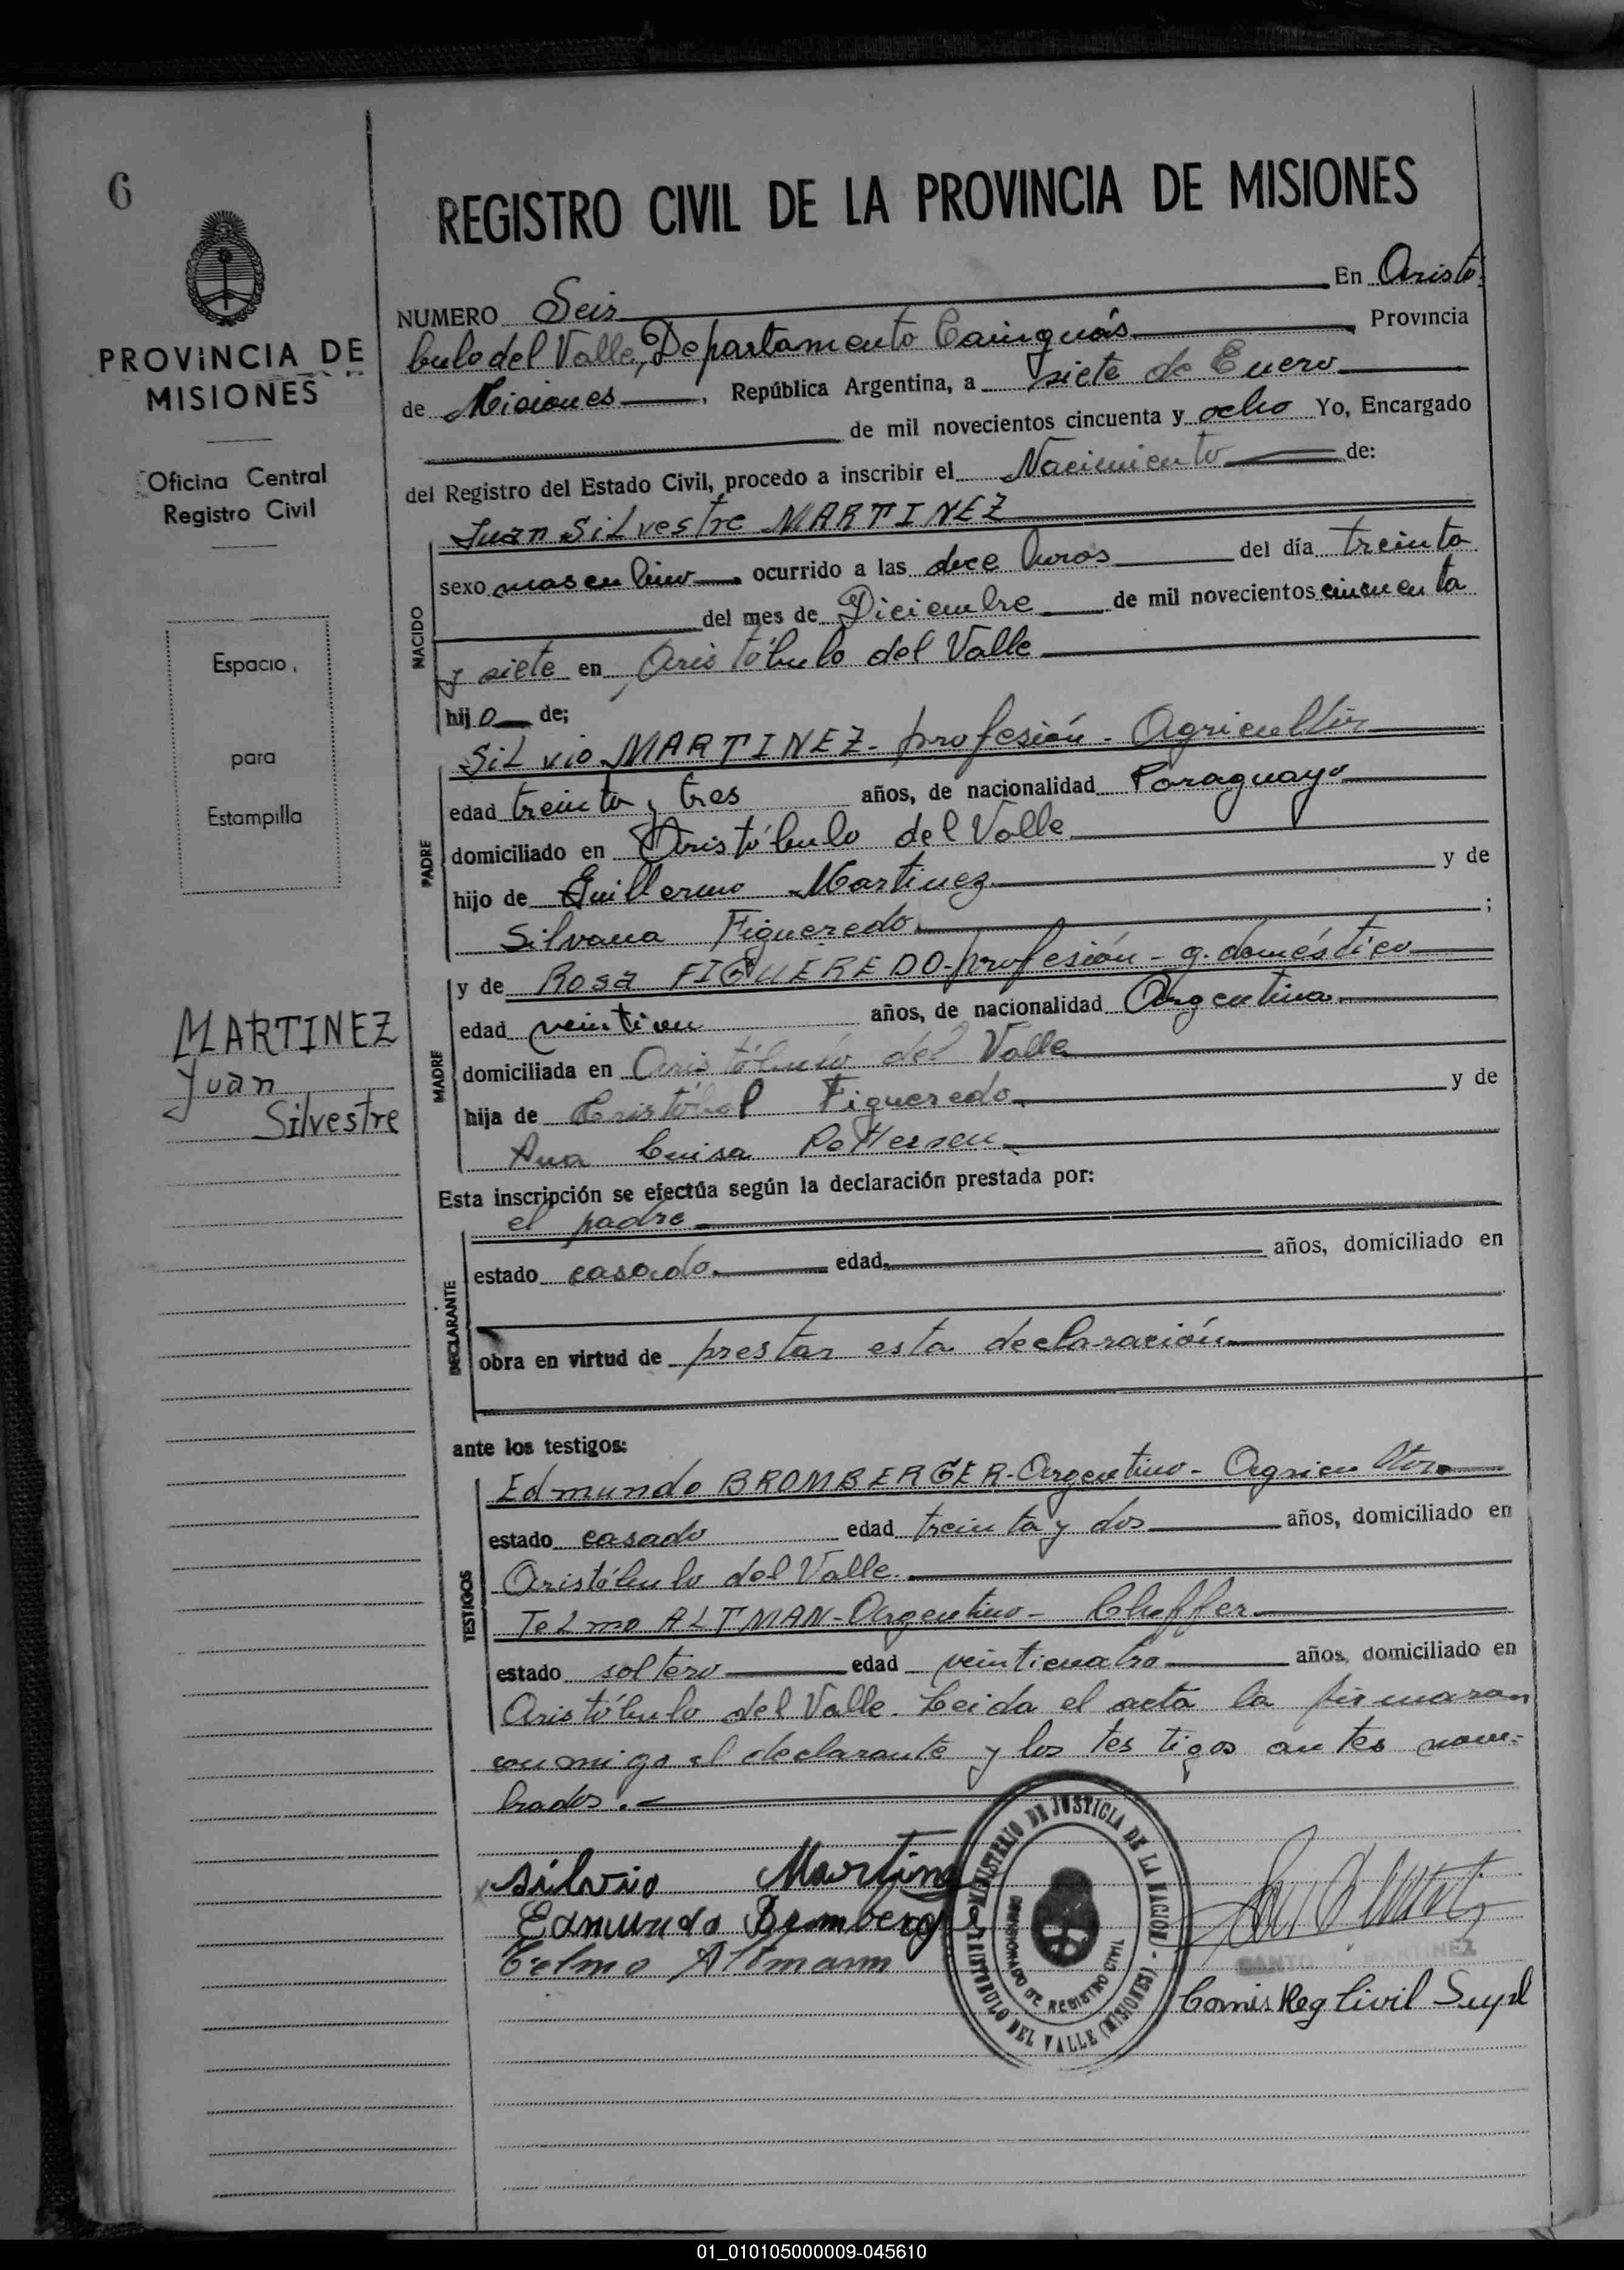 6
PROVINCIA DE
MISIONES
Oficina Central
Registro Civil
Espacio
para
Estampilla
MARTINEZ
Juan
Silvestre
REGISTRO CIVIL DE LA PROVINCIA DE MISIONES
NUMERO Seis En Aristó
bulo del Valle, Departamento Cainguás Provincia
de Misiones, República Argentina, a siete de Enero
de mil novecientos cincuenta y ocho Yo, Encargado
del Registro del Estado Civil, procedo a inscribir el Nacimiento de:
NACIDO
Juan Silvestre MARTINEZ
sexo masculino ocurrido a las doce horas del día treinta
del mes de Diciembre de mil novecientos cincuenta
y siete en Aristóbulo del Valle
hijo de;
PADRE
Silvio MARTINEZ- profesión - Agricultor
edad treinta y tres años, de nacionalidad Paraguayo
domiciliado en Aristóbulo del Valle
hijo de Guillermo Martinez y de
Silvana Figueredo ;
MADRE
y de Rosa FIGUEREDO-profesión - q. doméstico
edad veintiun años, de nacionalidad Argentina
domiciliada en Aristóbulo del Valle
hija de Cristóbal Figueredo y de
Ana Luisa Pettersen
Esta inscripción se efectúa según la declaración prestada por:
DECLARANTE
el padre
estado casado edad años, domiciliado en
obra en virtud de prestar esta declaración
ante los testigos:
TESTIGOS
Edmundo BROMBERGER-Argentino- Agricultor
estado casado edad treinta y dos años, domiciliado en
Aristóbulo del Valle.
Telmo ALTMAN-Argentino- Choffer
estado soltero edad veinticuatro años, domiciliado en
Aristóbulo del Valle. Leida el acta la firmaron
conmigo el declarante y los testigos antes nom-
brados.-
Silvio Martinez
Edmundo Bromberg
Telmo Altmann
MINISTERIO DE JUSTICIA DE LA NACION
ARISTOBULO DEL VALLE (MISIONES)
REGISTRO CIVIL
MARTINEZ
Comis Reg Civil Supl
01_010105000009-045610